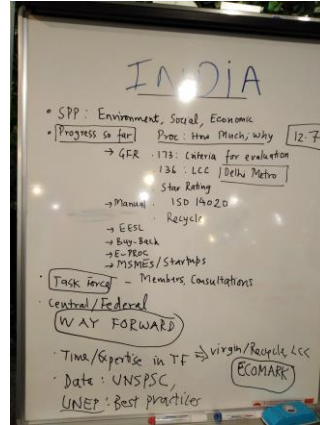 INDIA
• SPP: Environment, Social, Economic
• Progress so far   Proc: How Much, Why   12.7
→ GFR · 173: Criteria for evaluation
136: LCC Delhi Metro
Star Rating
→ Manual · ISO 14020
· Recycle
→ EESL
→ Buy-Back
→ E-PROC
→ MSMEs/Startups
• Task Force – Members, Consultations
• Central/Federal
WAY FORWARD
· Time/Expertise in TF ⇒ virgin/Recycle, LCC
ECOMARK
· Data: UNSPSC,
UNEP: Best practices